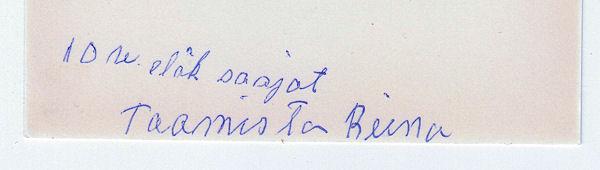 10 re eläk saajat
Taamista Riena